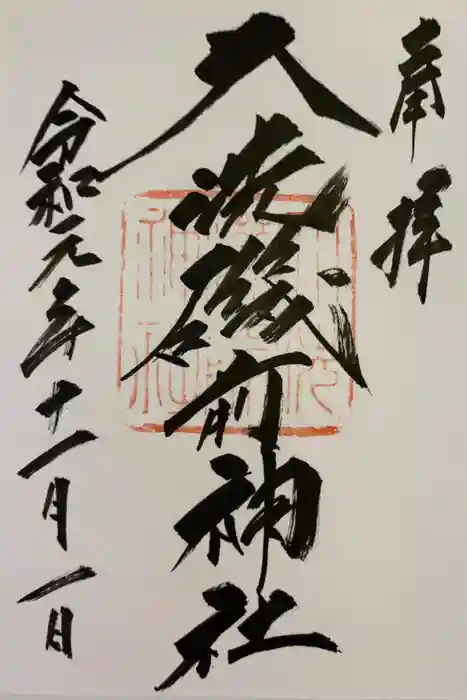 奉拝
大洗磯前神社
令和元年十一月一日